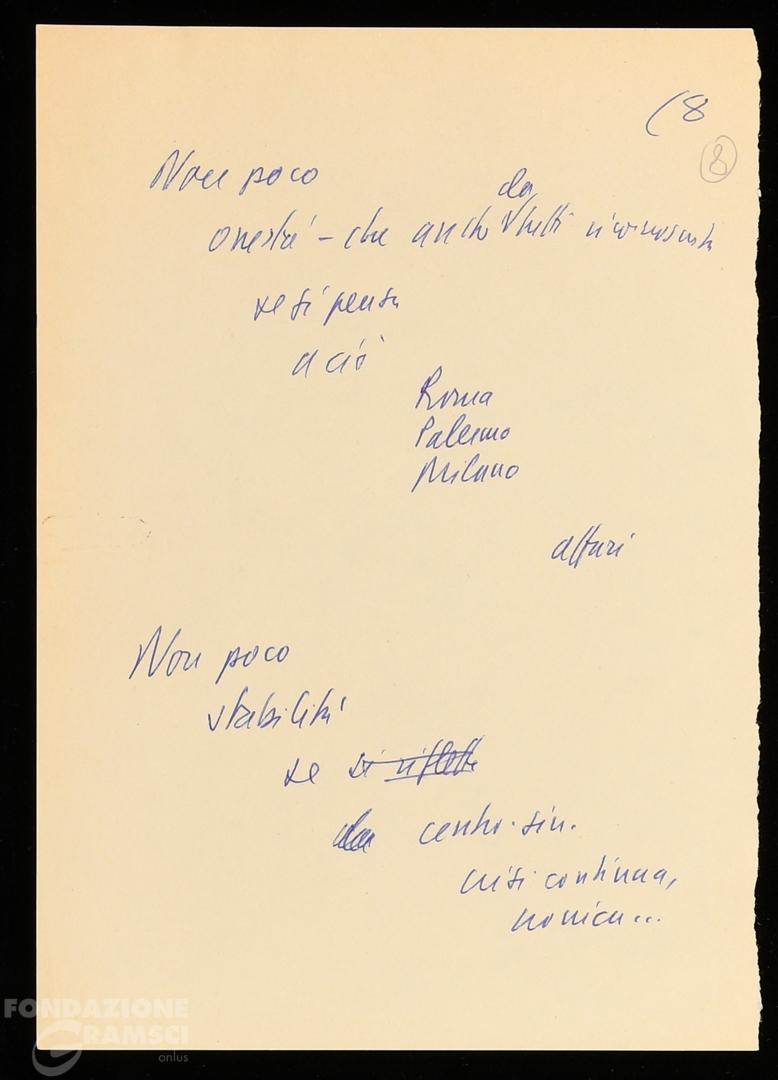 (8
8
Non poco
da
onestà - che anche tutti riconoscuta
se si pensa
a ciò
Roma
Palermo
Milano
affari
Non poco
stabilità
se si riflette
da centro-sin.
crisi continua,
FONDAZIONE
GRAMSCI
onlus